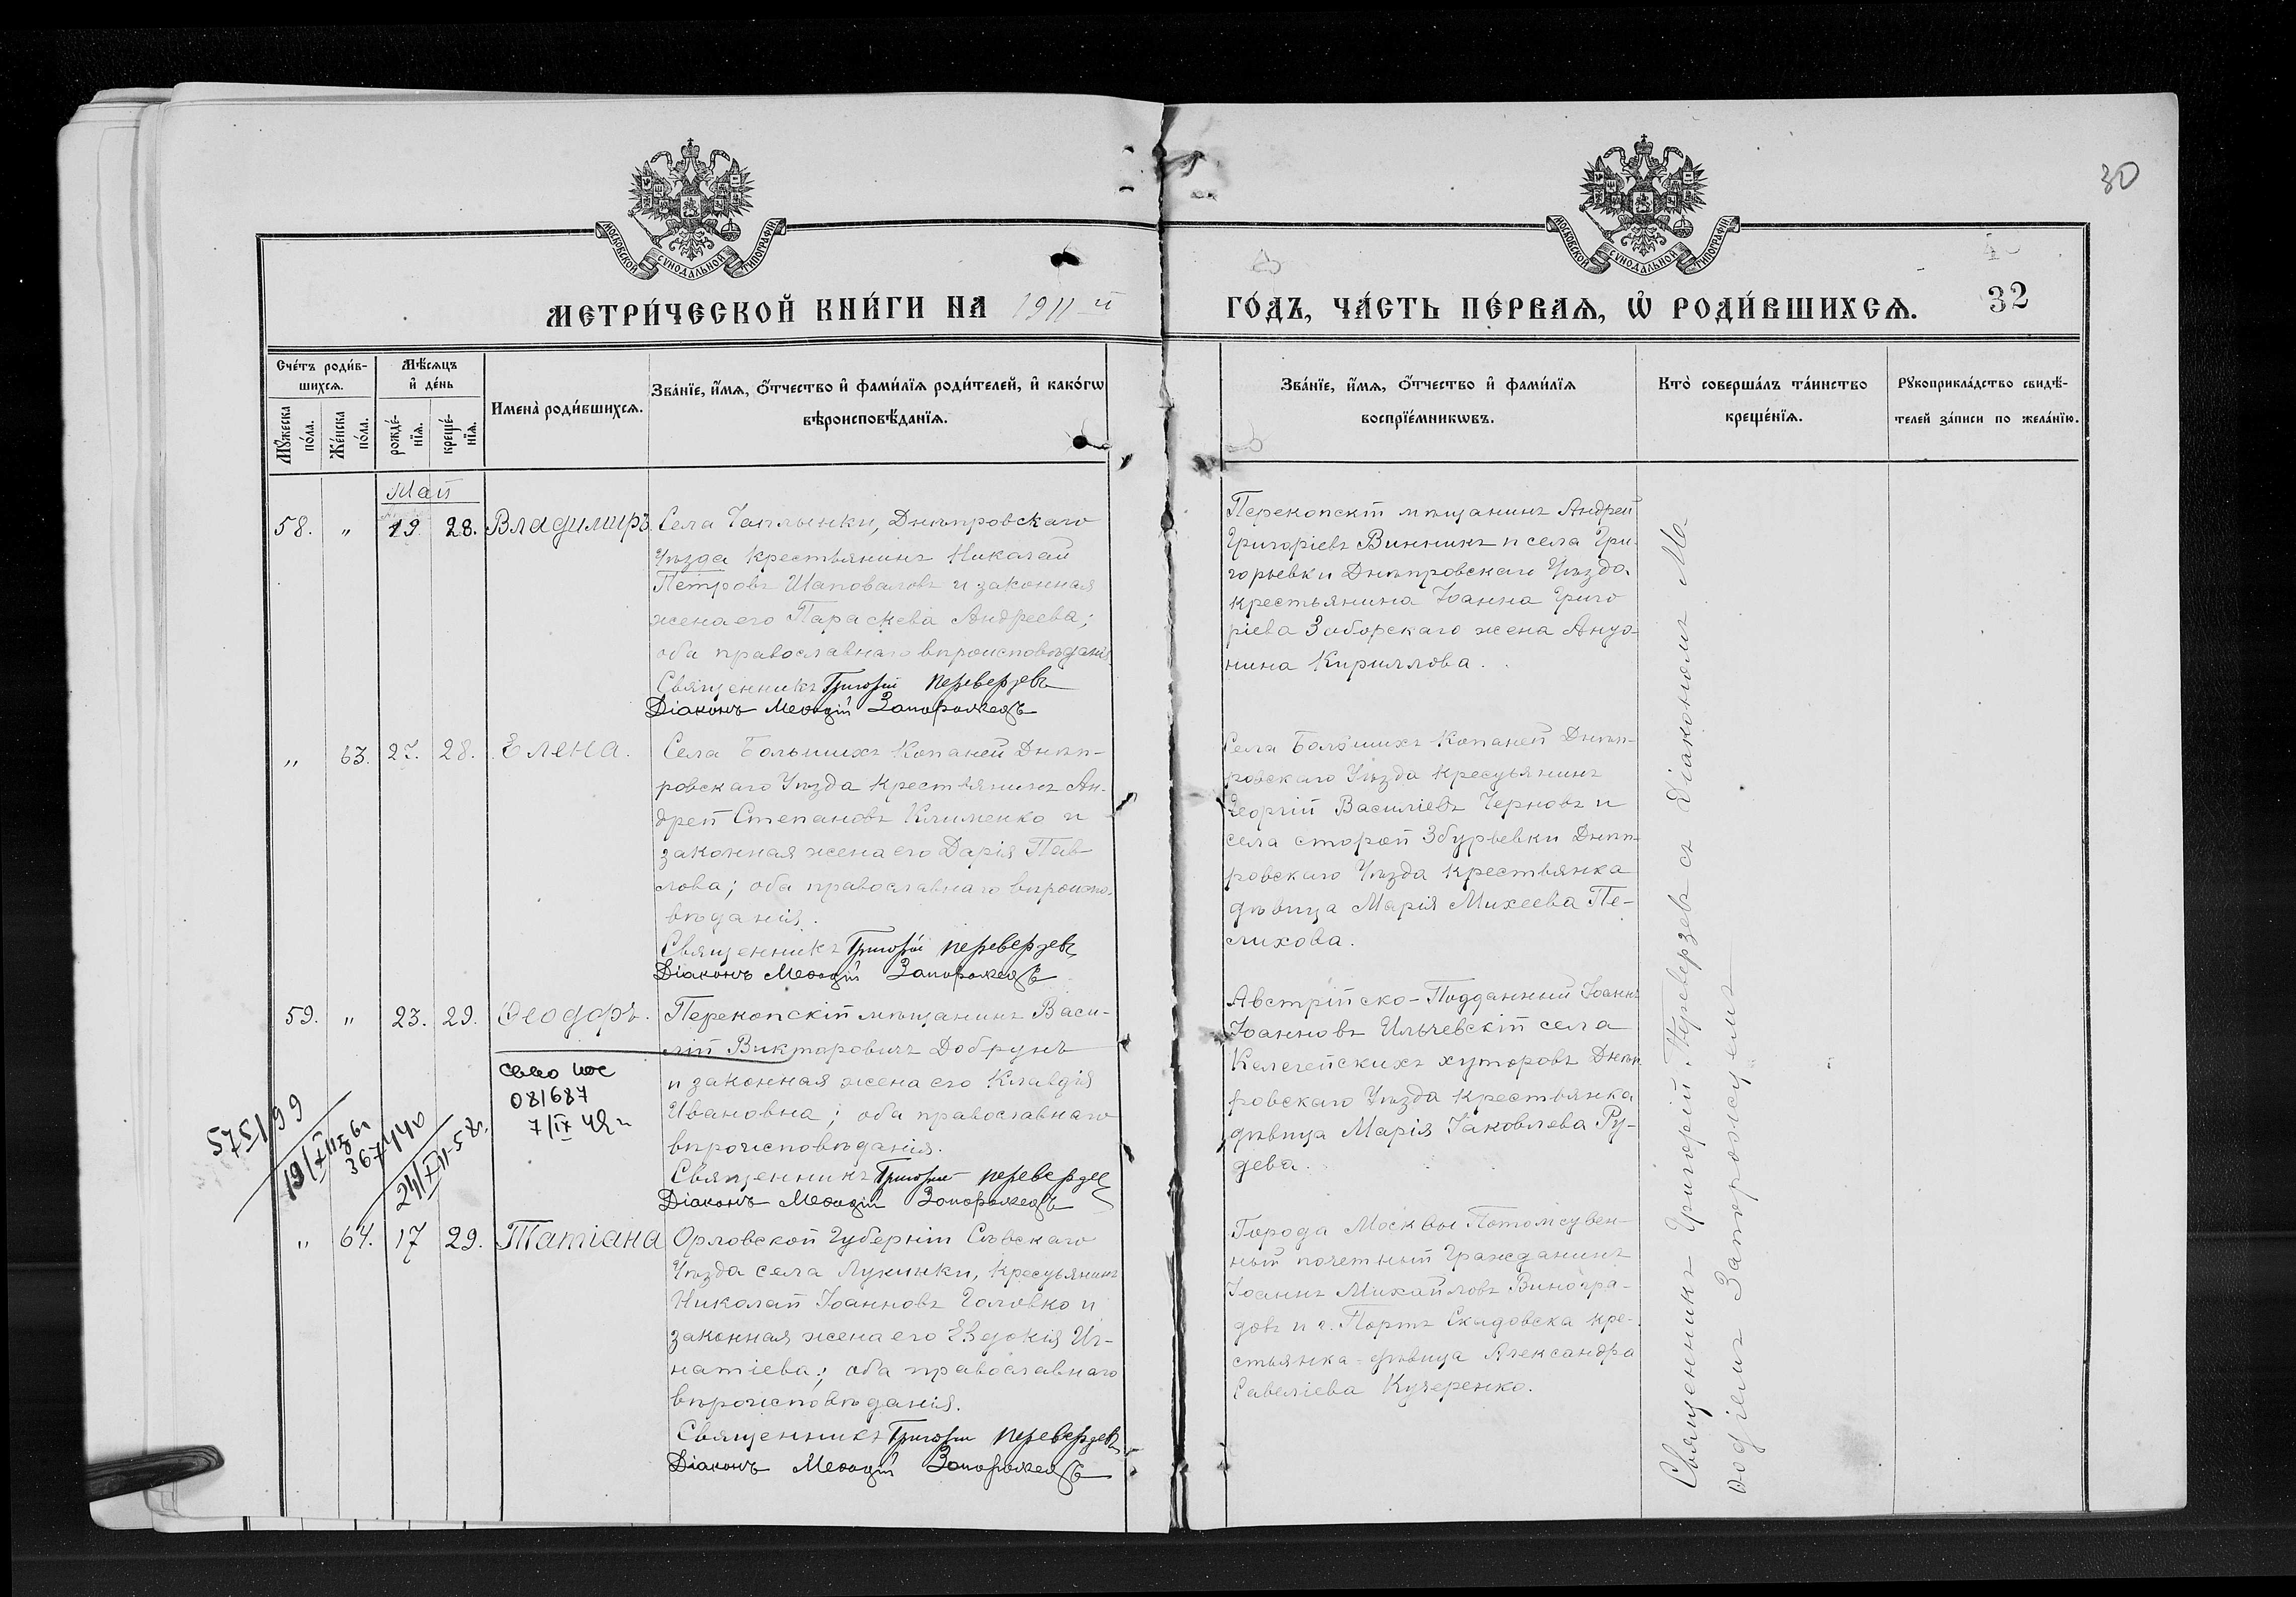 30
МОСКОВСКОЙ СѴНОДАЛЬНОЙ ТИПОГРАФІИ
МОСКОВСКОЙ СѴНОДАЛЬНОЙ ТИПОГРАФІИ
МЕТРИ́ЧЕСКОЙ КНИ́ГИ НА 1911 й
ГО́ДЪ, ЧА́СТЬ ПЕ́РВАѦ, Ѡ҆ РОДИ́ВШИХСѦ.
32
Сче́тъ роди́в-
шихсѧ.
Мꙋ́жеска
по́ла.
Же́нска
по́ла.
Мѣ́сѧцъ
и҆ де́нь
рожде́-
нїѧ.
креще́-
нїѧ.
Имена̀ роди́вшихсѧ.
Зва́нїе, и҆́мѧ, ѻ҆́тчество и҆ фами́лїѧ роди́телей, и҆ како́гѡ
вѣроисповѣ́данїѧ.
Зва́нїе, и҆́мѧ, ѻ҆́тчество и҆ фами́лїѧ
воспрїе́мникѡвъ.
Кто̀ соверша́лъ та́инство
креще́нїѧ.
Рꙋкоприкла́дство свидѣ́-
телей за́писи по жела́нїю.
Май
58. „ 19 28. Владимиръ
Села Чаплынки, Днѣпровскаго
Уѣзда крестьянинъ Николай
Петровъ Шаповаловъ и законная
жена его Параскева Андреева;
оба православнаго вѣроисповѣданія
Священникъ Григорій Переверзевъ
Діаконъ Меѳодій Запорожецъ
Перекопскій мѣщанинъ Андрей
Григоріевъ Винникъ и села Гри-
горьевки Днѣпровскаго Уѣзда
крестьянина Іоанна Григо
ріева Заборскаго жена
Кириллова.
„ 63. 27. 28. Елена.
Села Большихъ Копаней Днѣп-
ровскаго Уѣзда крестьянинъ Ан-
дрей Степановъ Клименко и
законная жена его Дарія Пав-
лова; оба православнаго вѣроиспо-
вѣданія.
Священникъ Григорій Переверзевъ
Діаконъ Меѳодій Запорожецъ
Села Большихъ Копаней Днѣп-
ровскаго Уѣзда крестьянинъ
Георгій Василіевъ Черновъ и
села старой Збурьевки Днѣп-
ровскаго Уѣзда крестьянка
дѣвица Марія Михеева Пе-
лихова.
59. „ 23. 29. Ѳеодоръ.
Перекопскій мѣщанинъ Васи-
лій Викторовичъ Добрунъ
и законная жена его Клавдія
Ивановна; оба православнаго
вѣроисповѣданія.
Священникъ Григорій Переверзев
Діаконъ Меѳодій Запорожецъ
081687
7/IX 42 г
575199
367440
Австрійско-Подданный Іоаннъ
Іоанновъ Ильчевскій села
Калегейскихъ хуторовъ Днѣп
ровскаго Уѣзда крестьянка
дѣвица Марія Іаковлева Ру-
дева.
„ 64. 17 29. Татіана
Орловской Губерніи Сѣвскаго
Уѣзда села Лукинки, крестьянинъ
Николай Іоанновъ Головко и
законная жена его Евдокія Иг-
натіева; оба православнаго
вѣроисповѣданія.
Священникъ Григорій Переверзевъ
Діаконъ Меѳодій Запорожецъ
Города Москвы Потомствен-
ный почетный Гражданинъ
Іоаннъ Михайловъ Виногра-
довъ и г. Портъ Скадовска кре-
стьянка-дѣвица Александра
Савеліева Кучеренко.
Священникъ Григорій Переверзевъ съ Діакономъ Ме-
ѳодіемъ Запорожцемъ